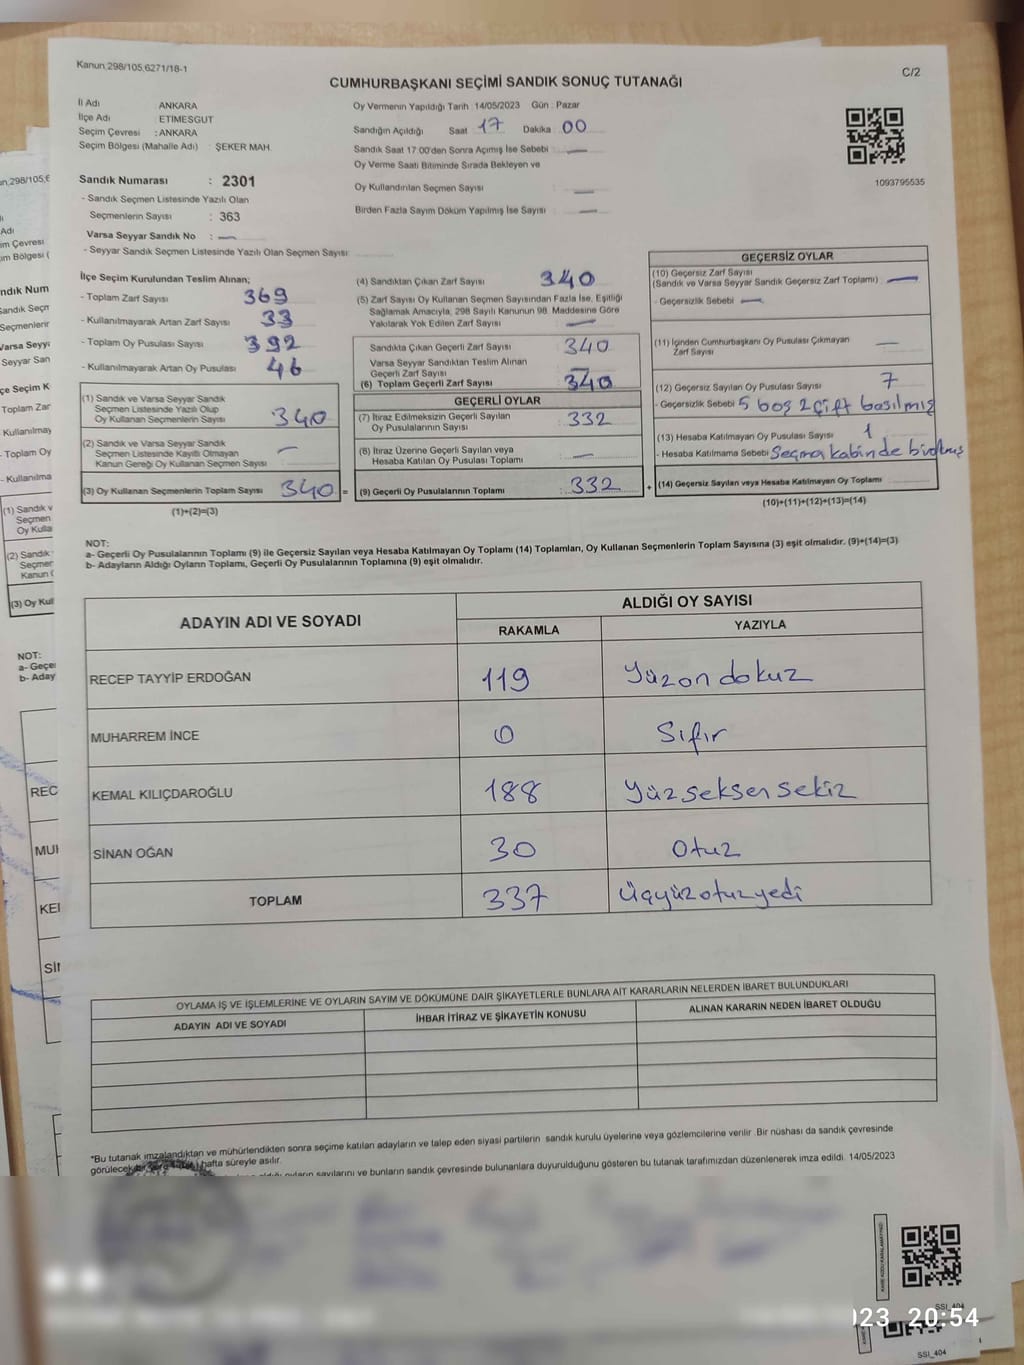 Kanun,298/105,6271/18-1
C/2
CUMHURBAŞKANI SEÇİMİ SANDIK SONUÇ TUTANAĞI
İl Adı ANKARA
İlçe Adı : ETİMESGUT
Seçim Çevresi : ANKARA
Seçim Bölgesi (Mahalle Adı) : ŞEKER MAH.
Oy Vermenin Yapıldığı Tarih :14/05/2023 Gün : Pazar
Sandığın Açıldığı Saat 17 Dakika 00
Sandık Saat 17:00'den Sonra Açımış İse Sebebi : —
Oy Verme Saati Bitiminde Sırada Bekleyen ve
Oy Kullandırılan Seçmen Sayısı : —
Birden Fazla Sayım Döküm Yapılmış İse Sayısı : —
1093795535
Sandık Numarası : 2301
- Sandık Seçmen Listesinde Yazılı Olan
Seçmenlerin Sayısı : 363
Varsa Seyyar Sandık No : —
- Seyyar Sandık Seçmen Listesinde Yazılı Olan Seçmen Sayısı:
İlçe Seçim Kurulundan Teslim Alınan;
- Toplam Zarf Sayısı 369
- Kullanılmayarak Artan Zarf Sayısı : 33
- Toplam Oy Pusulası Sayısı : 392
- Kullanılmayarak Artan Oy Pusulası : 46
(1) Sandık ve Varsa Seyyar Sandık
Seçmen Listesinde Yazılı Olup
Oy Kullanan Seçmenlerin Sayısı : 340
(2) Sandık ve Varsa Seyyar Sandık
Seçmen Listesinde Kayıtlı Olmayan
Kanun Gereği Oy Kullanan Seçmen Sayısı : —
(3) Oy Kullanan Seçmenlerin Toplam Sayısı : 340 =
(1)+(2)=(3)
(4) Sandıktan Çıkan Zarf Sayısı : 340
(5) Zarf Sayısı Oy Kullanan Seçmen Sayısından Fazla İse, Eşitliği
Sağlamak Amacıyla, 298 Sayılı Kanunun 98. Maddesine Göre
Yakılarak Yok Edilen Zarf Sayısı : —
Sandıkta Çıkan Geçerli Zarf Sayısı : 340
Varsa Seyyar Sandıktan Teslim Alınan
Geçerli Zarf Sayısı : —
(6) Toplam Geçerli Zarf Sayısı : 340
GEÇERLİ OYLAR
(7) İtiraz Edilmeksizin Geçerli Sayılan
Oy Pusulalarının Sayısı : 332
(8) İtiraz Üzerine Geçerli Sayılan veya
Hesaba Katılan Oy Pusulası Toplamı : —
(9) Geçerli Oy Pusulalarının Toplamı : 332 +
GEÇERSİZ OYLAR
(10) Geçersiz Zarf Sayısı
(Sandık ve Varsa Seyyar Sandık Geçersiz Zarf Toplamı) : —
- Geçersizlik Sebebi : —
(11) İçinden Cumhurbaşkanı Oy Pusulası Çıkmayan
Zarf Sayısı : —
(12) Geçersiz Sayılan Oy Pusulası Sayısı : 7
- Geçersizlik Sebebi : 5 boş 2 çift basılmış
(13) Hesaba Katılmayan Oy Pusulası Sayısı : 1
- Hesaba Katılmama Sebebi :
(14) Geçersiz Sayılan veya Hesaba Katılmayan Oy Toplamı :
(10)+(11)+(12)+(13)=(14)
NOT:
a- Geçerli Oy Pusulalarının Toplamı (9) ile Geçersiz Sayılan veya Hesaba Katılmayan Oy Toplamı (14) Toplamları, Oy Kullanan Seçmenlerin Toplam Sayısına (3) eşit olmalıdır. (9)+(14)=(3)
b- Adayların Aldığı Oyların Toplamı, Geçerli Oy Pusulalarının Toplamına (9) eşit olmalıdır.
ADAYIN ADI VE SOYADI ALDIĞI OY SAYISI
RAKAMLA YAZIYLA
RECEP TAYYİP ERDOĞAN 119 Yüzon dokuz
MUHARREM İNCE 0 Sıfır
KEMAL KILIÇDAROĞLU 188 Yüz seksen sekiz
SİNAN OĞAN 30 Otuz
TOPLAM 337 Üçyüzotuzyedi
OYLAMA İŞ VE İŞLEMLERİNE VE OYLARIN SAYIM VE DÖKÜMÜNE DAİR ŞİKAYETLERLE BUNLARA AİT KARARLARIN NELERDEN İBARET BULUNDUKLARI
ADAYIN ADI VE SOYADI İHBAR İTİRAZ VE ŞİKAYETİN KONUSU ALINAN KARARIN NEDEN İBARET OLDUĞU
*Bu tutanak imzalandıktan ve mühürlendikten sonra seçime katılan adayların ve talep eden siyasi partilerin sandık kurulu üyelerine veya gözlemcilerine verilir .Bir nüshası da sandık çevresinde
görülecek bir yere hafta süreyle asılır.
oyların sayılarını ve bunların sandık çevresinde bulunanlara duyurulduğunu gösteren bu tutanak tarafımızdan düzenlenerek imza edildi. 14/05/2023
SSİ_404
023 20:54
SSİ_404